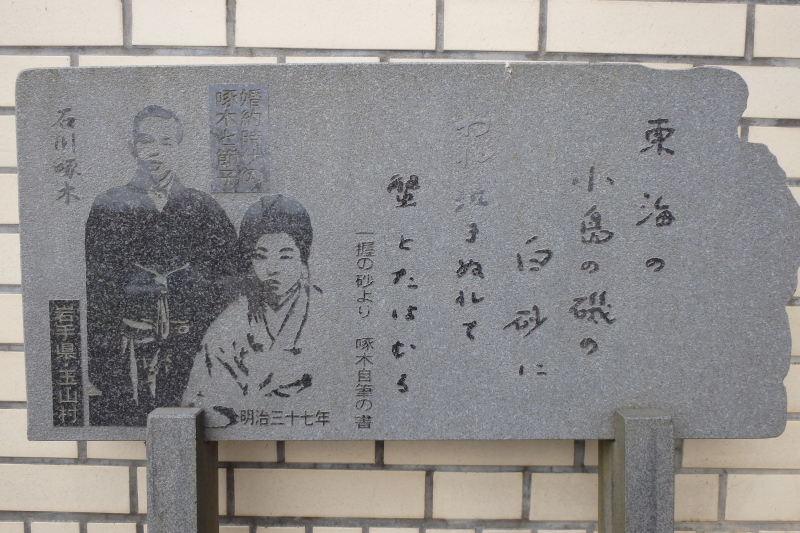 東海の
小島の磯の
白砂に
われ泣きぬれて
蟹とたはむる
一握の砂より 啄木自筆の書
婚約時代の
啄木と節子
石川啄木
明治三十七年
岩手県・玉山村